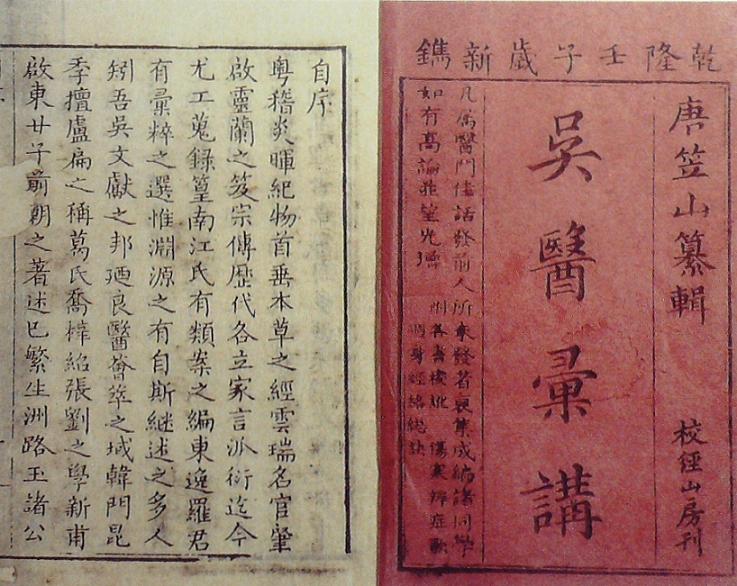 乾隆壬子歲新鐫
唐笠山纂輯 校經山房刊
吳醫彙講
凡屬醫門佳話發前人所未發者裒集成編諸同學
如有高論並望光增
傷寒辨症歌
周身經絡總訣
自序
粵稽炎暉紀物首垂本草之經雲瑞名官肇
啟靈蘭之笈宗傳歷代各立家言派衍迄今
尤工蒐録篁南江氏有類案之編東逸羅君
有彙粹之選惟淵源之有自斯継述之多人
矧吾吳文獻之邦廼良醫薈萃之域韓門昆
季擅盧扁之稱葛氏喬梓紹張劉之學新甫
啟東廿子前朝之著述巳繁生洲路玉諸公